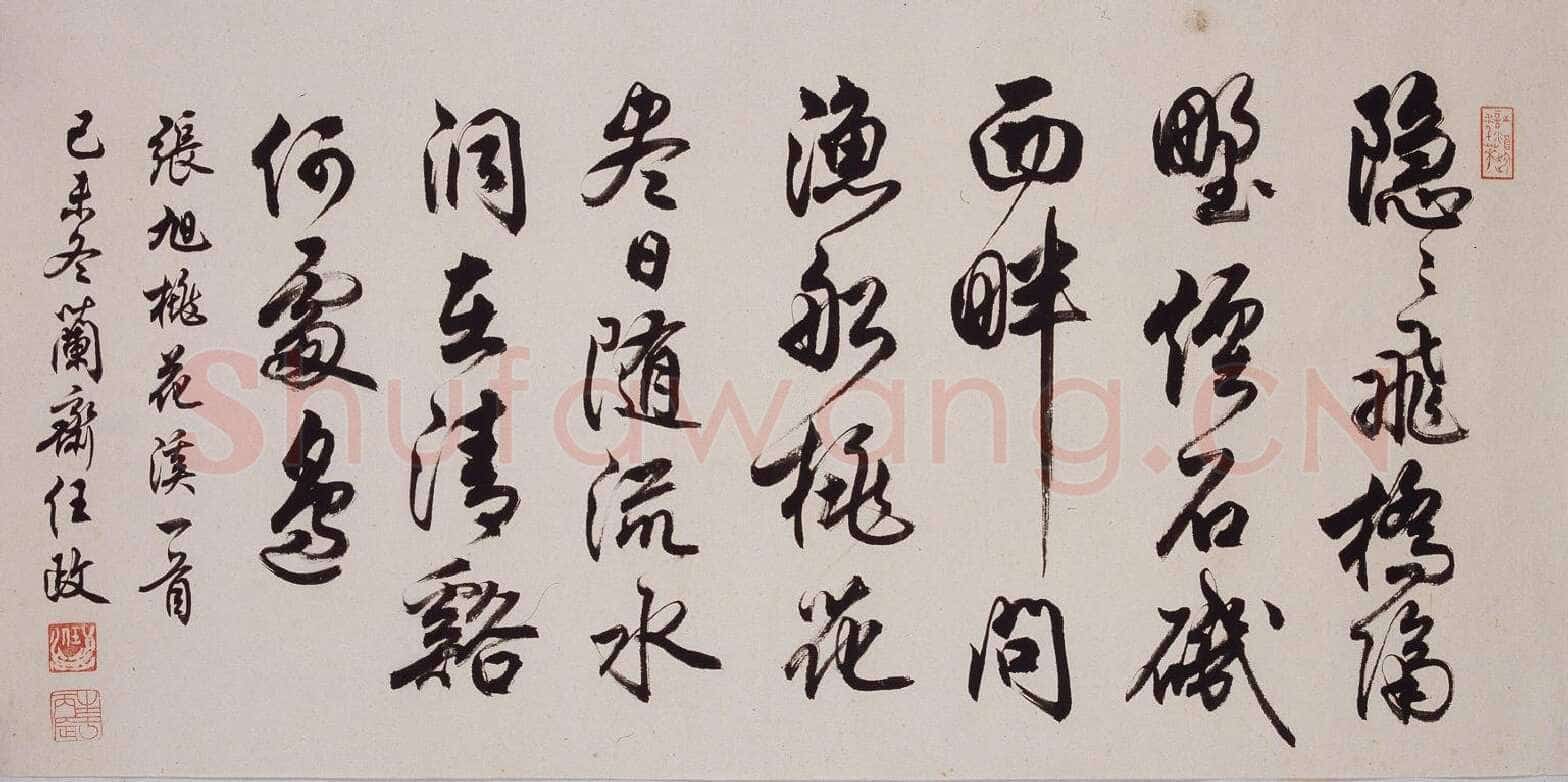 隐〻飛橋隔
野煙石磯
西畔問
漁船桃花
尽日随流水
洞在清谿
何處邊
張旭桃花溪一首
己未冬蘭齋任政
Shufawang.CN